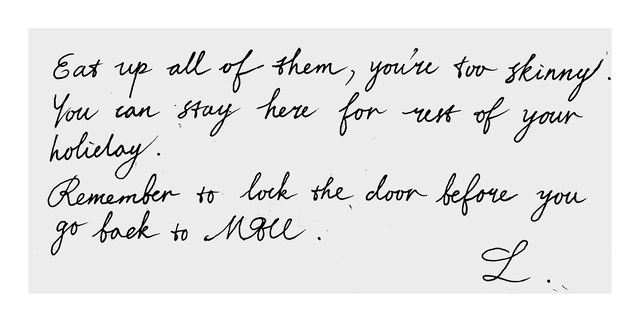 Eat up all of them, you're too skinny!.
You can stay here for rest of your
holiday.
Remember to lock the door before you
go back to
L.